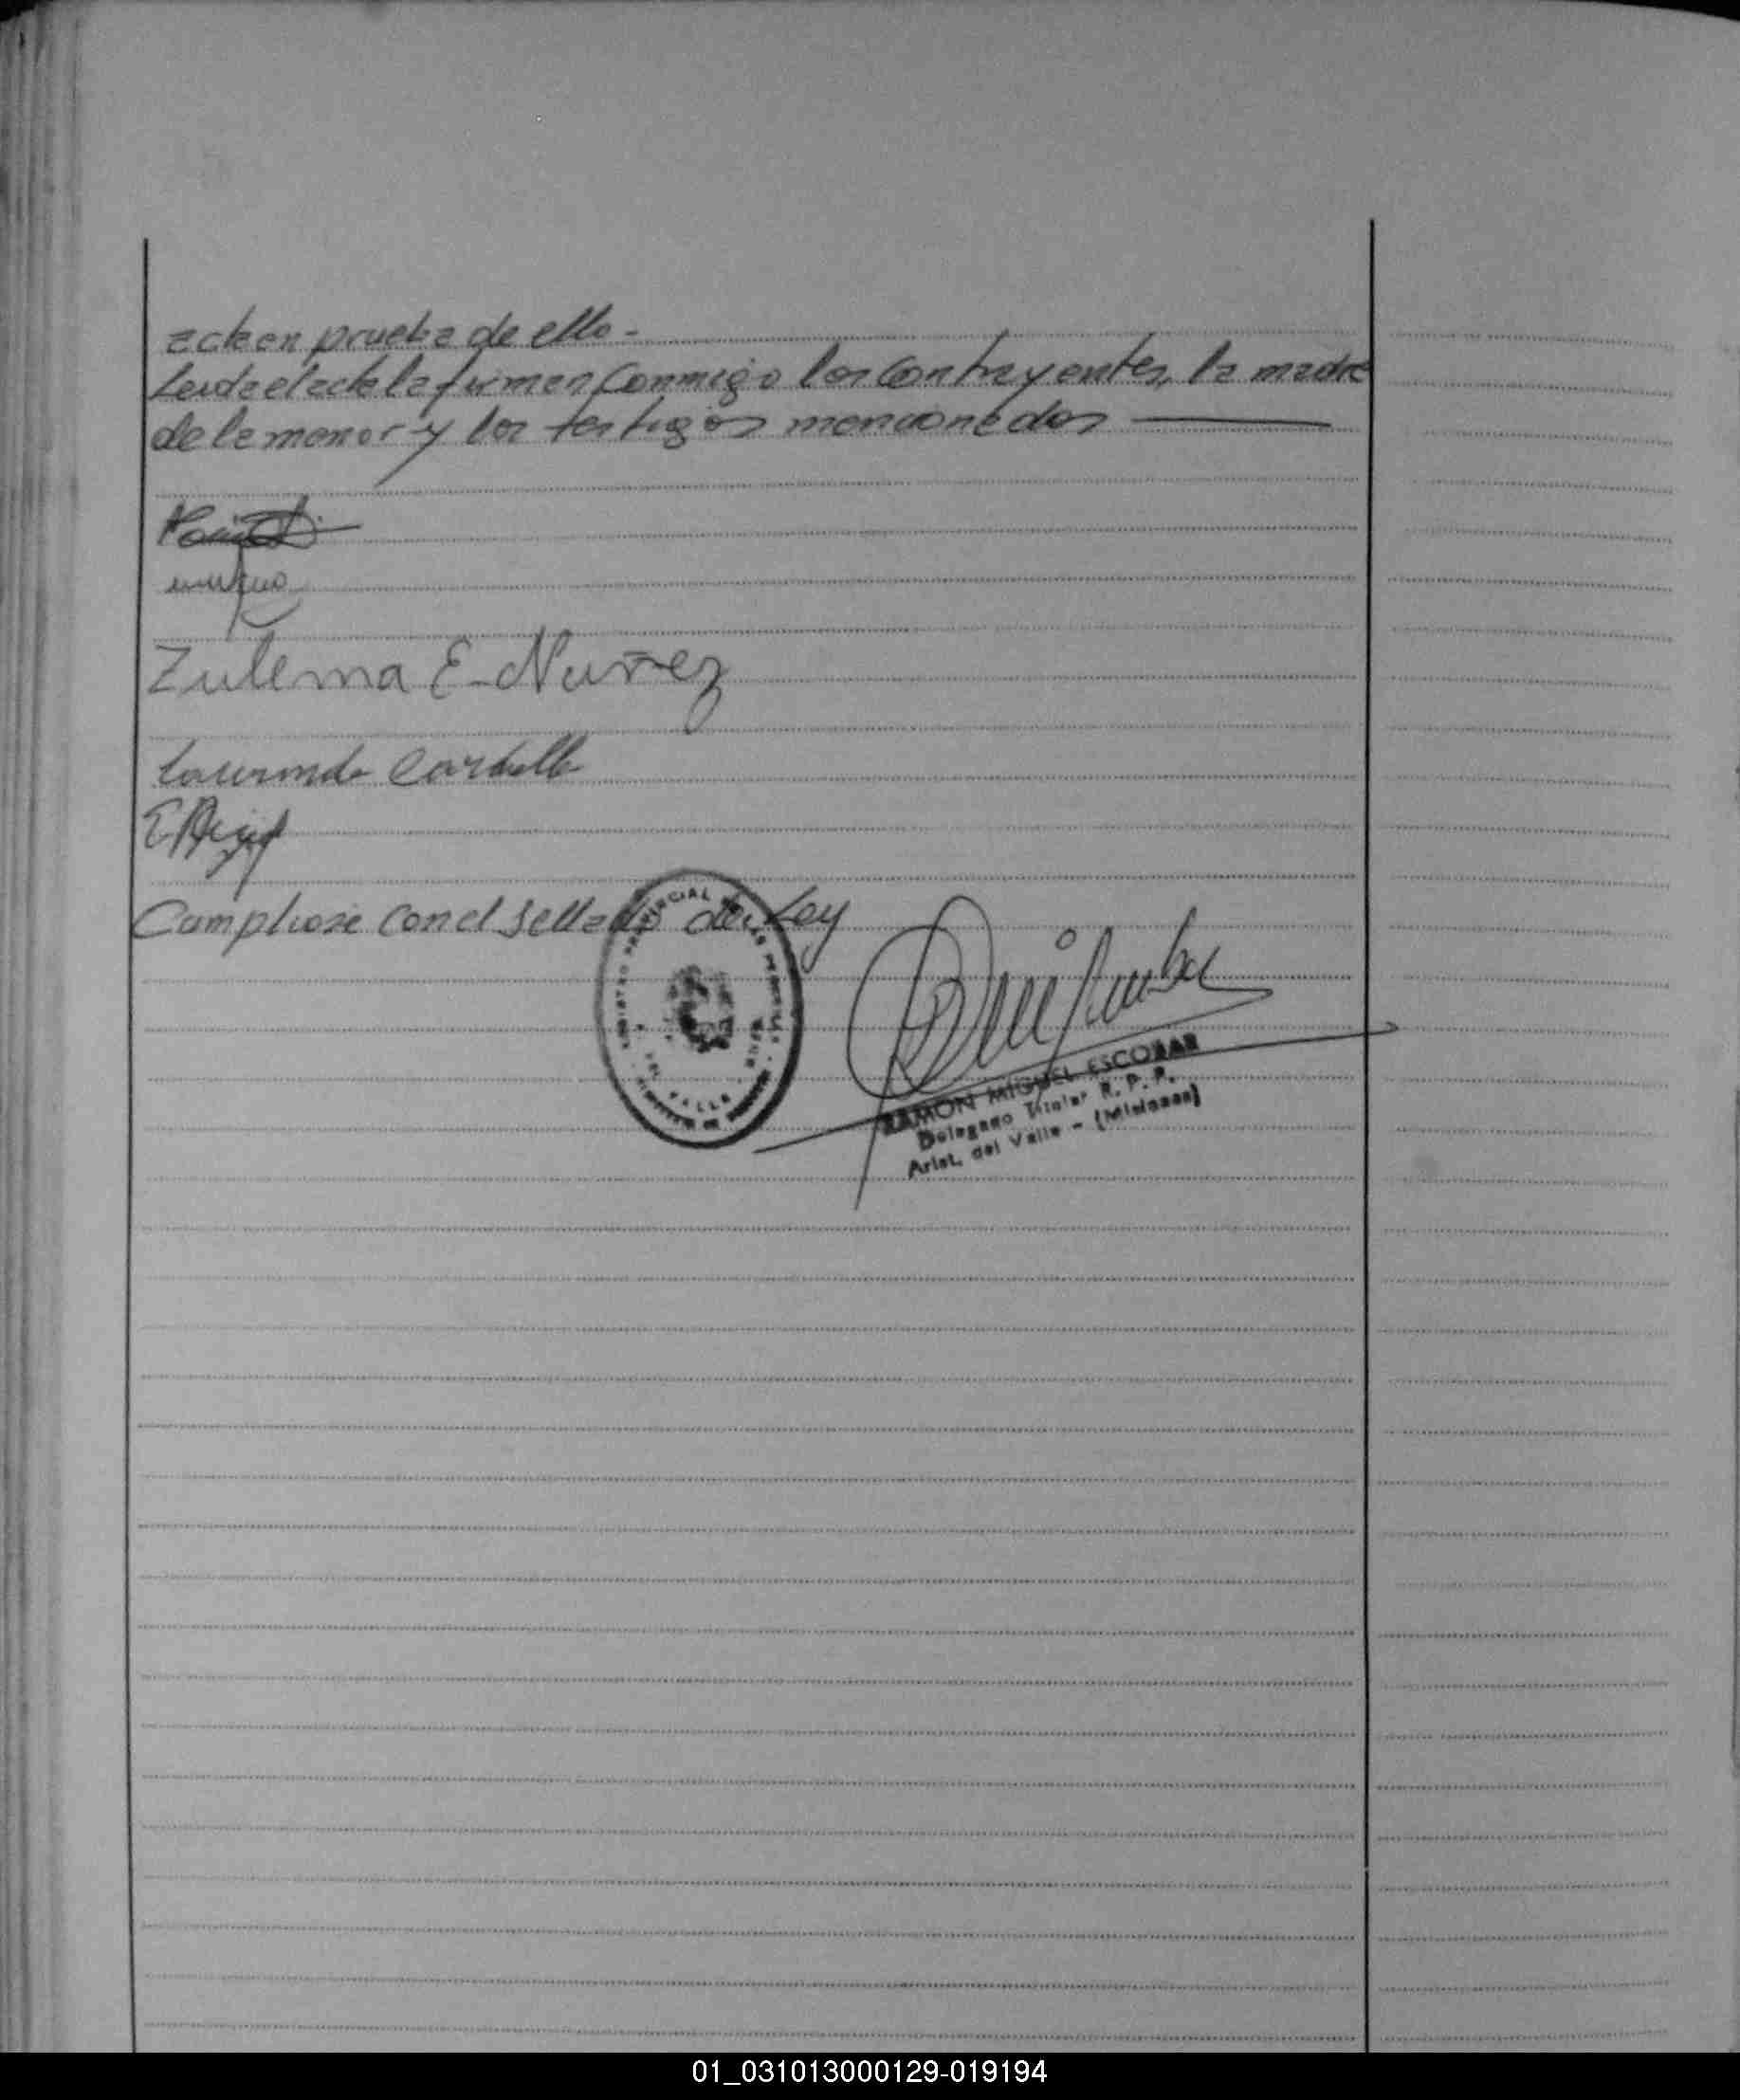 acta en prueba de ello -
Leida el acta la firman conmigo los contrayentes, la madre
de la menor y los testigos mencionados
Zulema E. Nuñez
Laurindo
Cumpliose con el sellado de Ley
PROVINCIAL DE LAS PERSONAS
DEL VALLE
RAMON MIGUEL ESCOBAR
Delegado Titular R. P. P.
Arist. del Valle - (Misiones)
01_031013000129-019194